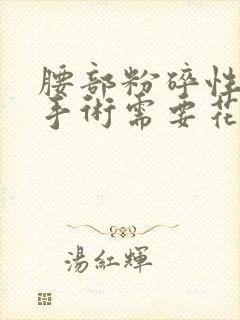 腰部粉碎性
手術需要花
湯紅輝